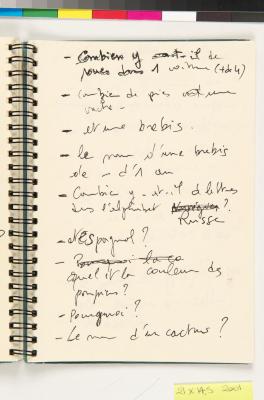 - Combien y est-il de
roues dans 1 voiture (+ de 4)
- combien de pies vaut une
vache -
- et une brebis.
- le nom d'une brebis
de - d'1 an
- Combien y -at-il de lettres
dans l'alphabet ?
Russe
- et Espagnol ?
- Pourquoi
quel est la couleur des
pompiers ?
- Pourquoi ?
- Le nom d'un cactus ?
21 X 14,5 2001